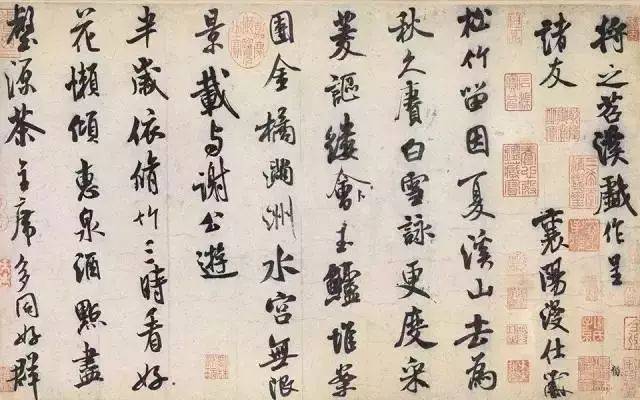 將之苕溪戲作呈
諸友
襄陽漫仕黻
松竹留因夏溪山去為
秋久賡白雪詠更度采
菱謳縷會玉鱸堆案
團金橘滿洲水宮無限
景載与謝公遊
半歲依脩竹三時看好
花懶傾惠泉酒點盡
壑源茶主席多同好群